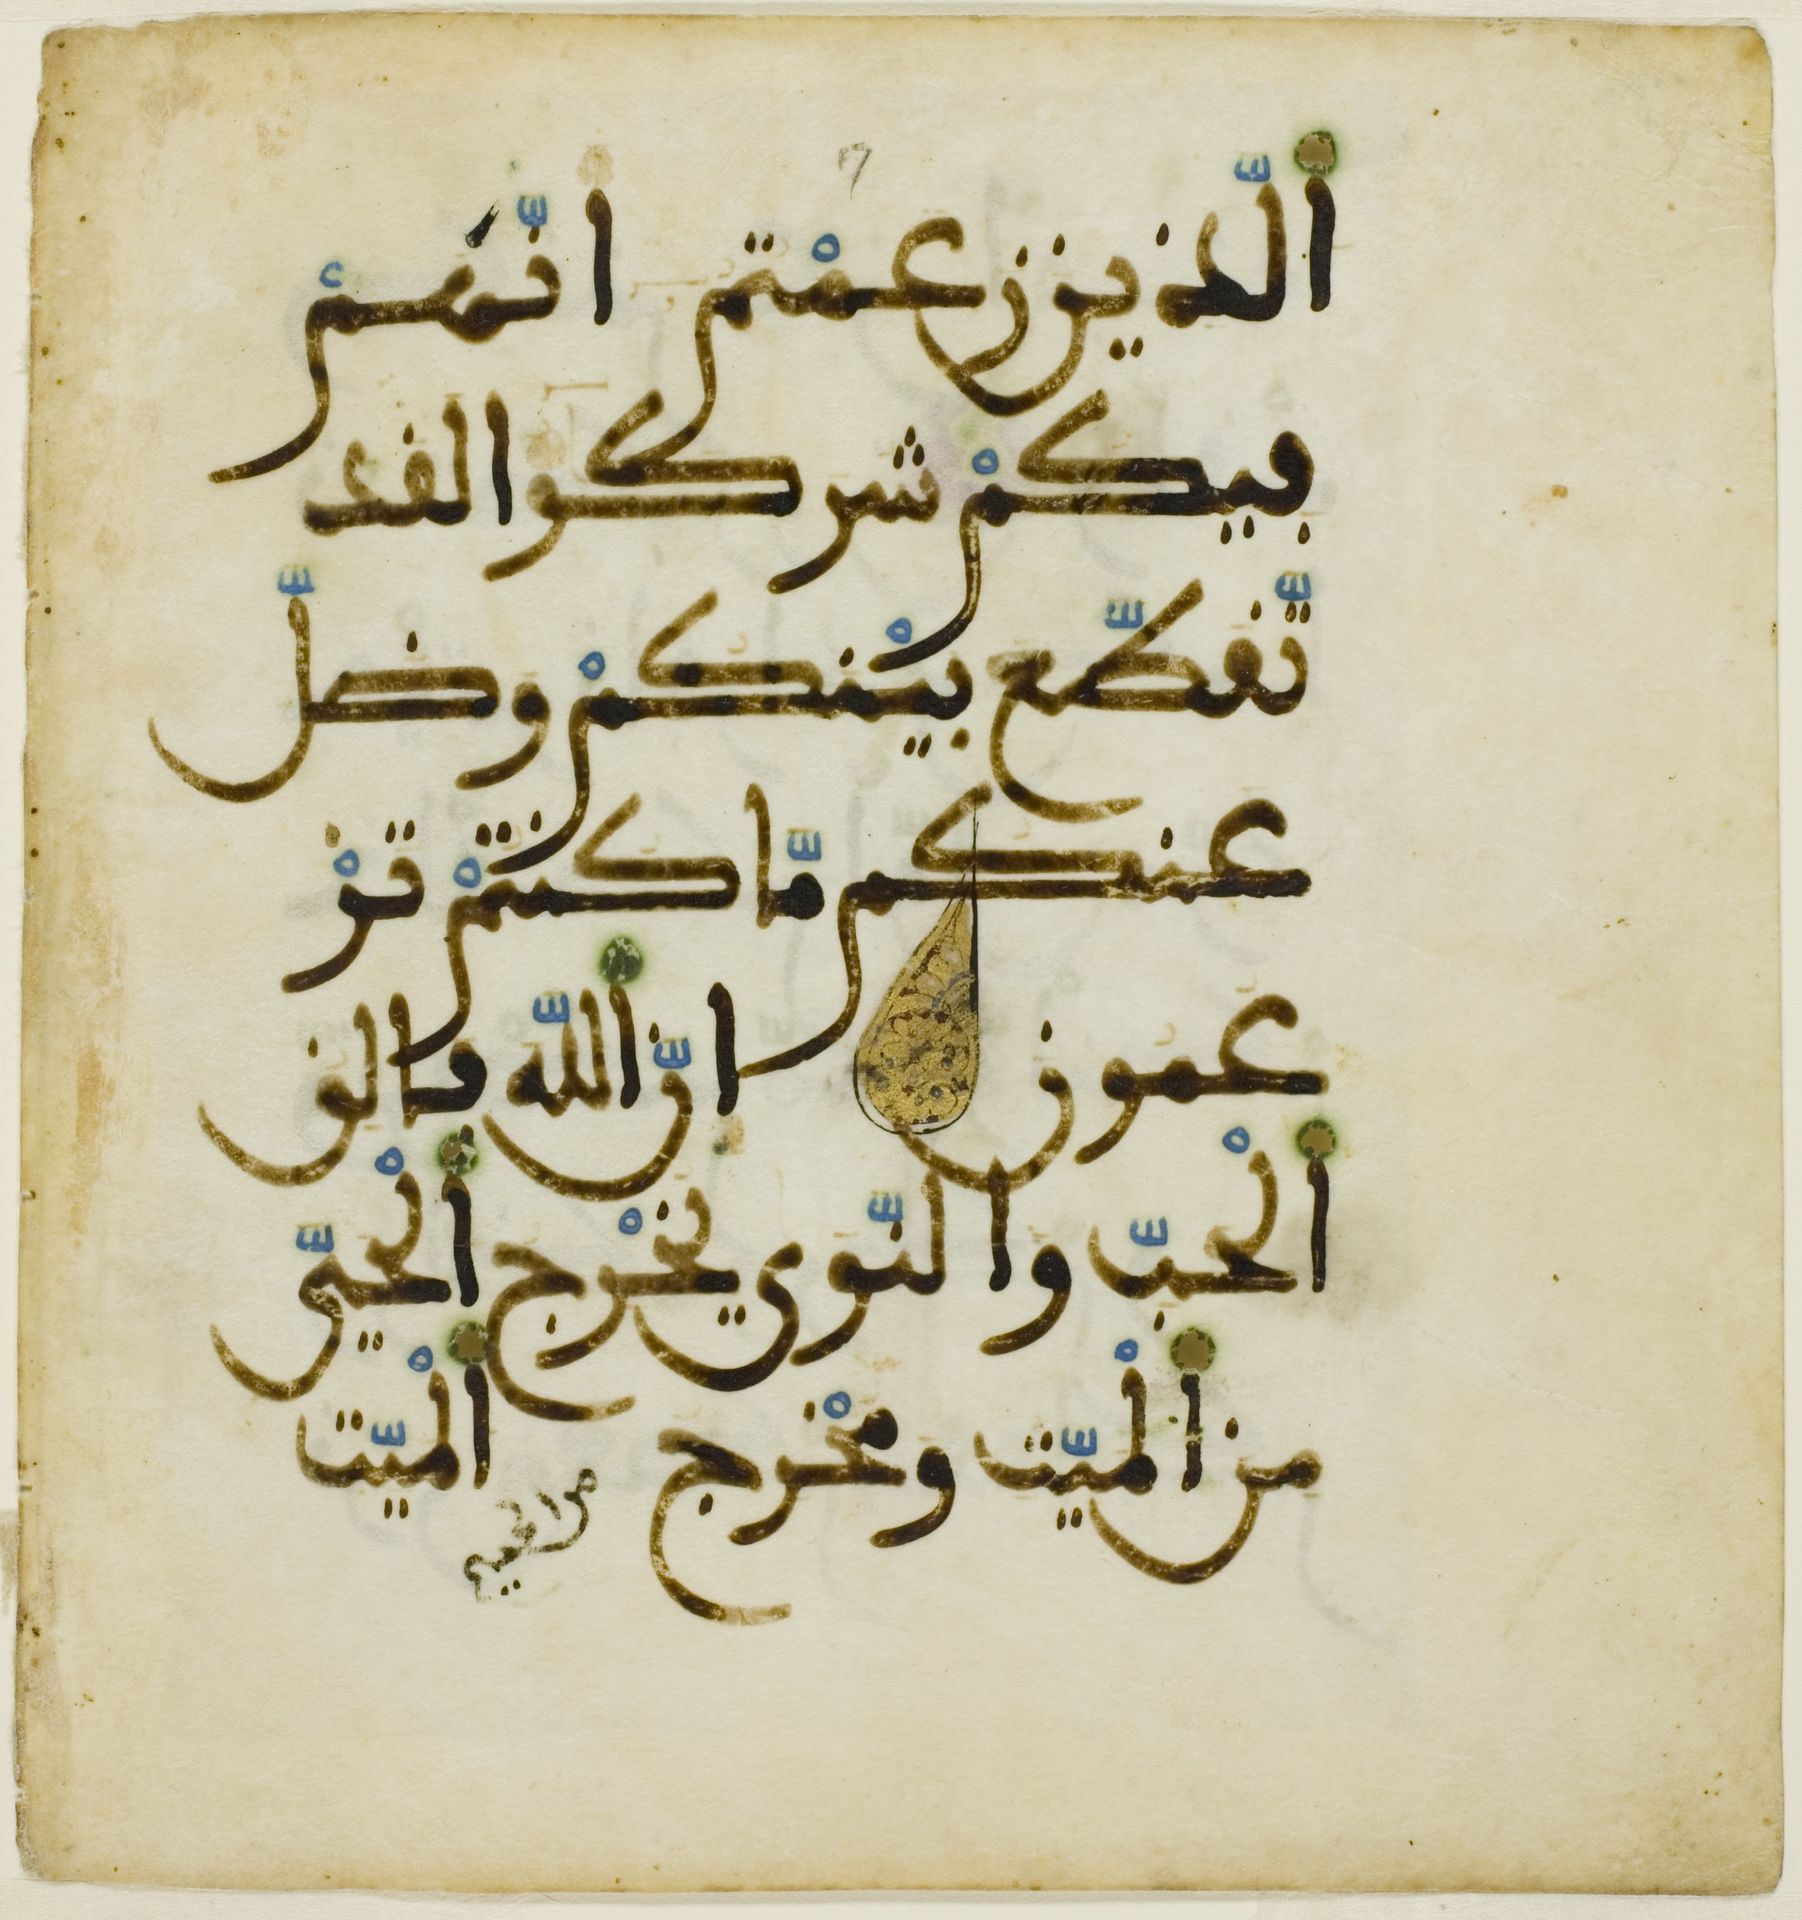 الّذين زعمْتم انّهمْ
فيكمْ شركوا لقد
تّقطّع بيْنكمْ وضلّ
عنكم مّا كنتمْ تزْ
عمون انّ الله فالق
الْحبّ والنّوى يخْرج الْحيّ
من الْميّت ومخْرج الْميّت
من الحي